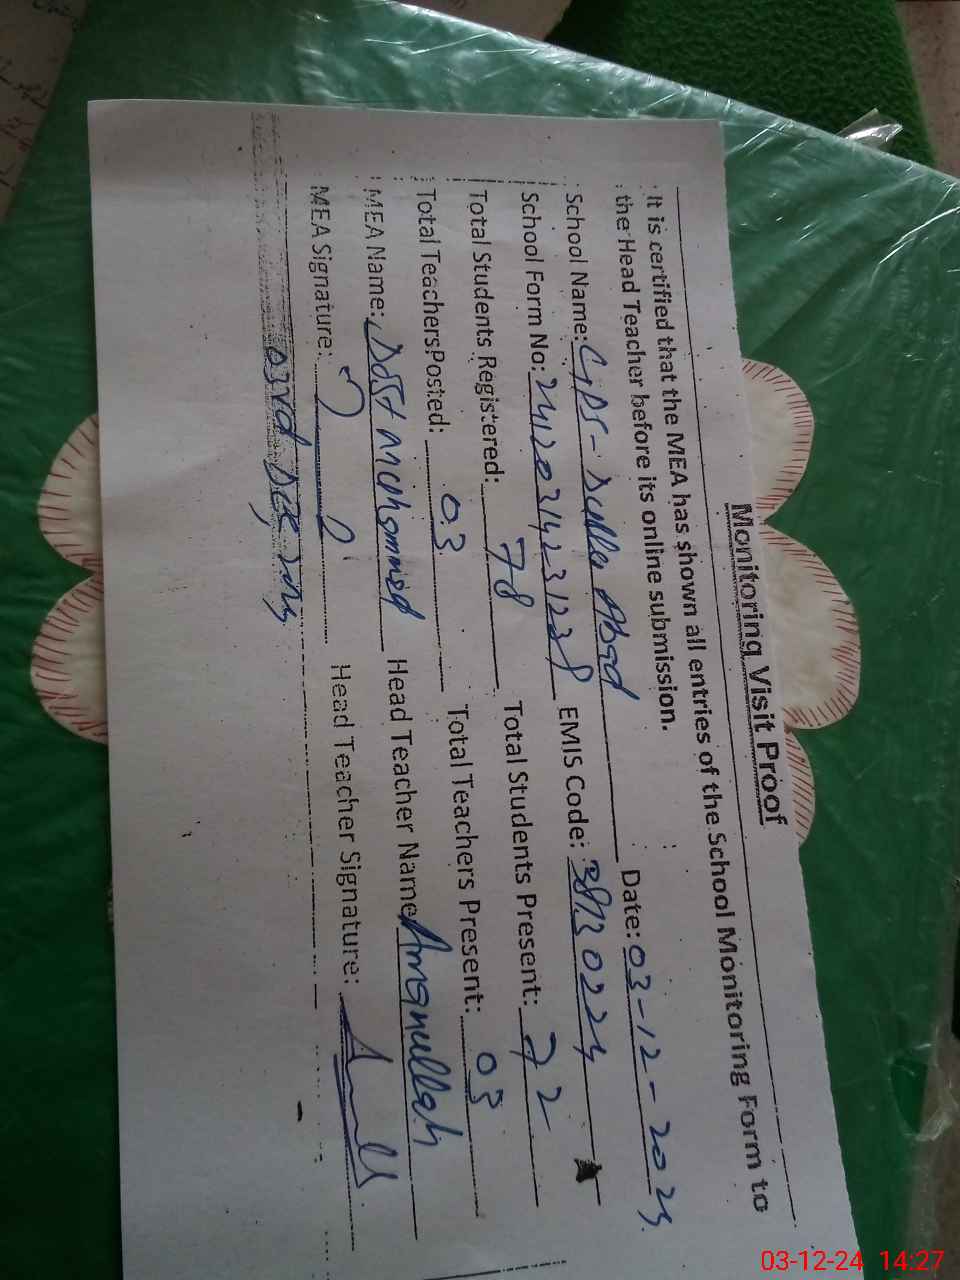 Monitoring Visit Proof
It is certified that the MEA has shown all entries of the School Monitoring Form to
the Head Teacher before its online submission.
School Name: GPS - Abad Date: 03-12-2024
School Form No: 24120314231238 EMIS Code: 38130224
Total Students Registered: 78 Total Students Present: 72
Total Teachers Posted: 03 Total Teachers Present: 03
MEA Name: Dost Mohammed Head Teacher Name Amanullah
MEA Signature: Head Teacher Signature:
03rd Dec, 2024
03-12-24 14:27